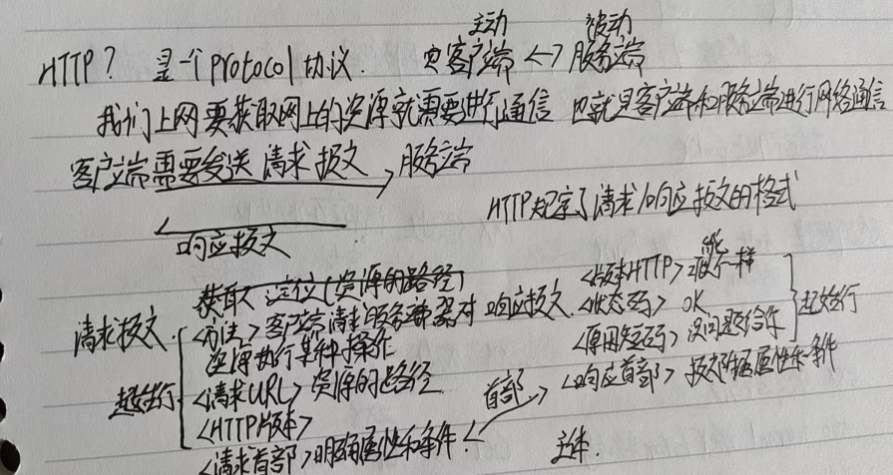 主动 被动
HTTP? 是一个protocol协议. 客户端 <-> 服务端
我们上网要获取网上的资源就需要进行通信 也就是客户端和服务端进行网络通信
客户端需要发送 请求报文 → 服务端
HTTP规定了请求/响应报文的格式
← 响应报文
请求报文
起始行
<方法> 客户端请求服务器对
资源执行某种操作
<请求URL> 资源的路径
<HTTP版本>
<请求首部> 明确属性和条件
响应报文
<版本HTTP> 一样
<状态码> OK
<原因短码>
起始行
首部 <响应首部> 报文 属性 条件
主体.